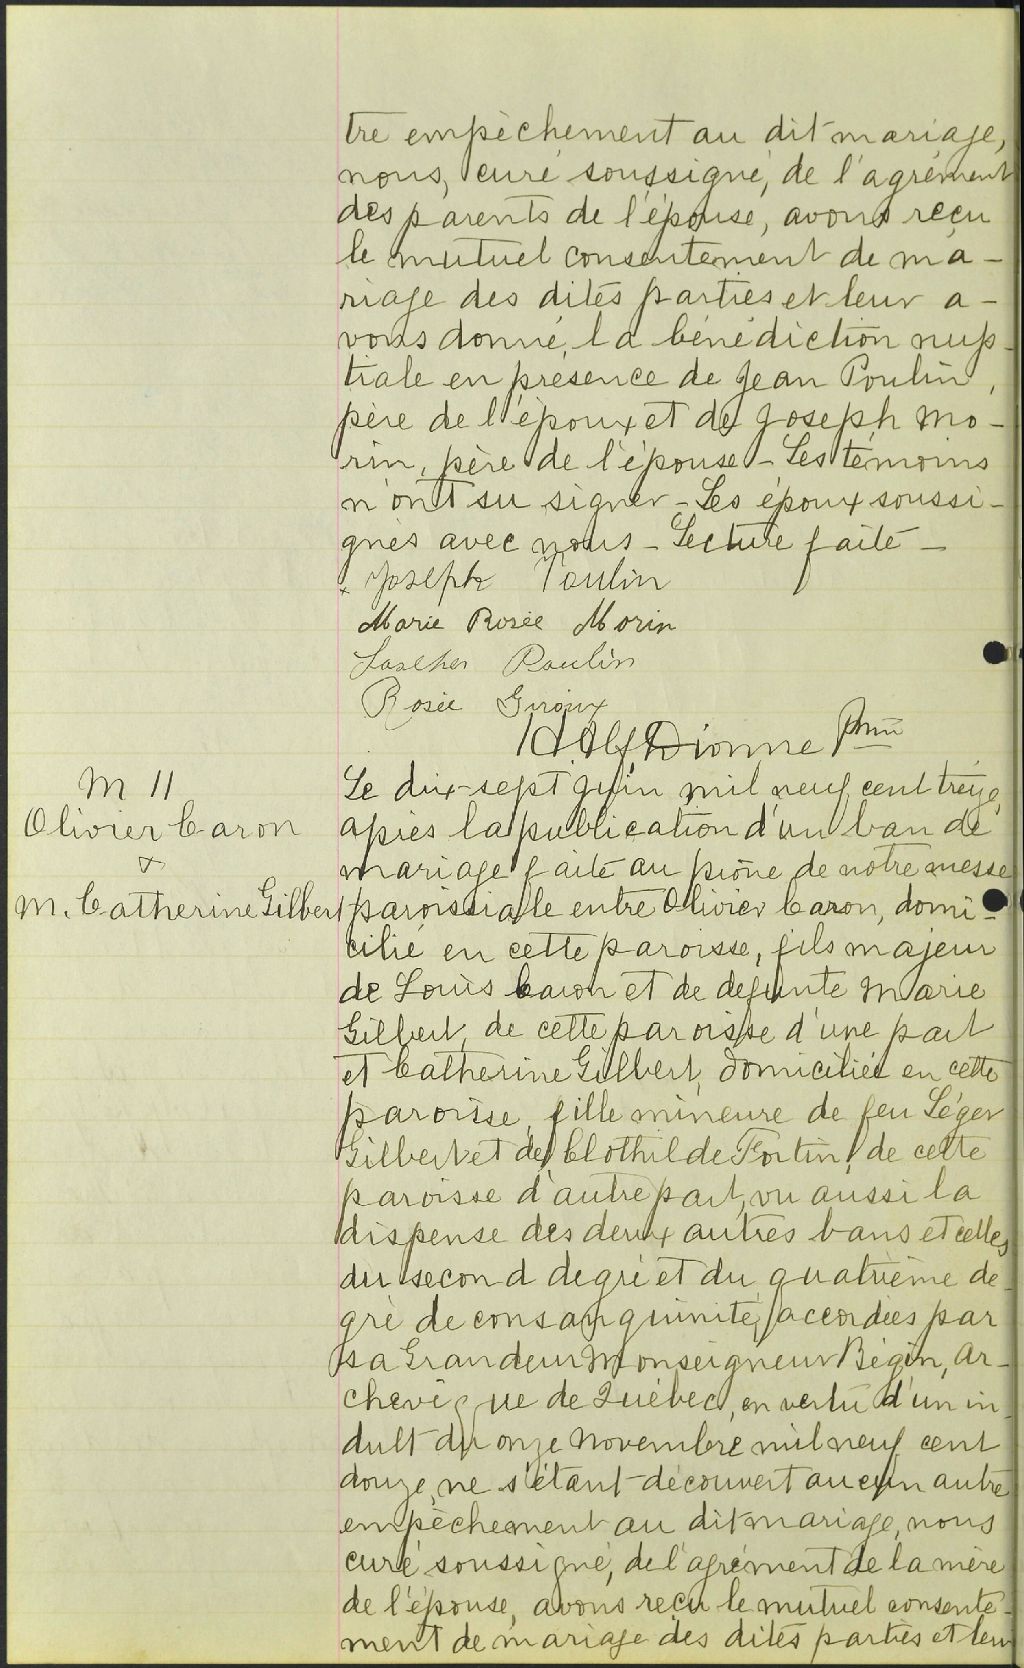 tre empêchement au dit mariage,
nous, curé soussigné, de l'agrément
des parents de l'épouse, avons reçu
le mutuel consentement de ma-
riage des dites parties et leur a-
vons donné la bénédiction nup-
tiale en présence de Jean Poulin,
père de l'époux et de Joseph Mo-
rin, père de l'épouse - Les témoins
n'ont su signer - Les époux soussi-
gnés avec nous - Lecture faite -
x Joseph Poulin
Marie Rosée Morin
Poulin
Rosée Giroux
Dionne Ptre
M 11
Olivier Caron
&
M. Catherine Gilbert
Le dix-sept juin mil neuf cent treize,
après la publication d'un ban de
mariage faite au prône de notre messe
paroissiale entre Olivier Caron, domi-
cilié en cette paroisse, fils majeur
de Louis Caron et de defunte Marie
Gilbert, de cette paroisse d'une part
et Catherine Gilbert, domiciliée en cette
paroisse, fille mineure de feu Léger
Gilbert et de Clothilde Fortin, de cette
paroisse d'autre part, vu aussi la
dispense des deux autres bans et celles
du second degré et du quatrième de-
gré de consanguinité, accordées par
sa Grandeur Monseigneur Bégin, Ar-
chevêque de Québec, en vertu d'un in-
dult du onze Novembre mil neuf cent
douze, ne s'étant découvert aucun autre
empêchement au dit mariage, nous
curé soussigné, de l'agrément de la mère
de l'épouse, avons reçu le mutuel consente-
ment de mariage des dites parties et leur